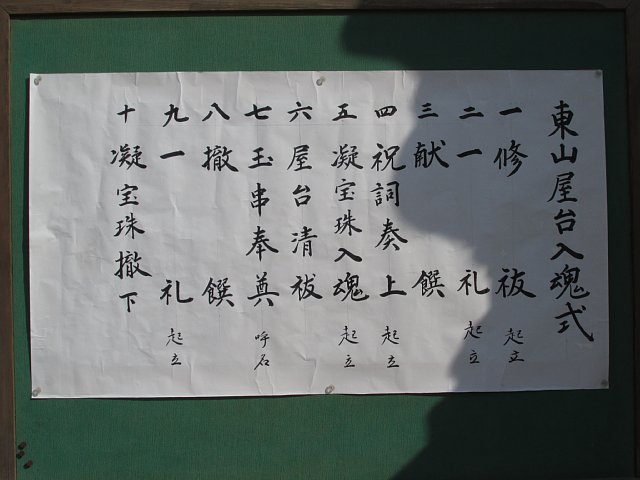 東山屋台入魂式
一 修祓 起立
二 一礼 起立
三 献饌
四 祝詞奏上 起立
五 凝宝珠入魂 起立
六 屋台清祓
七 玉串奉奠 呼名
八 撤饌
九 一礼 起立
十 凝宝珠撤下